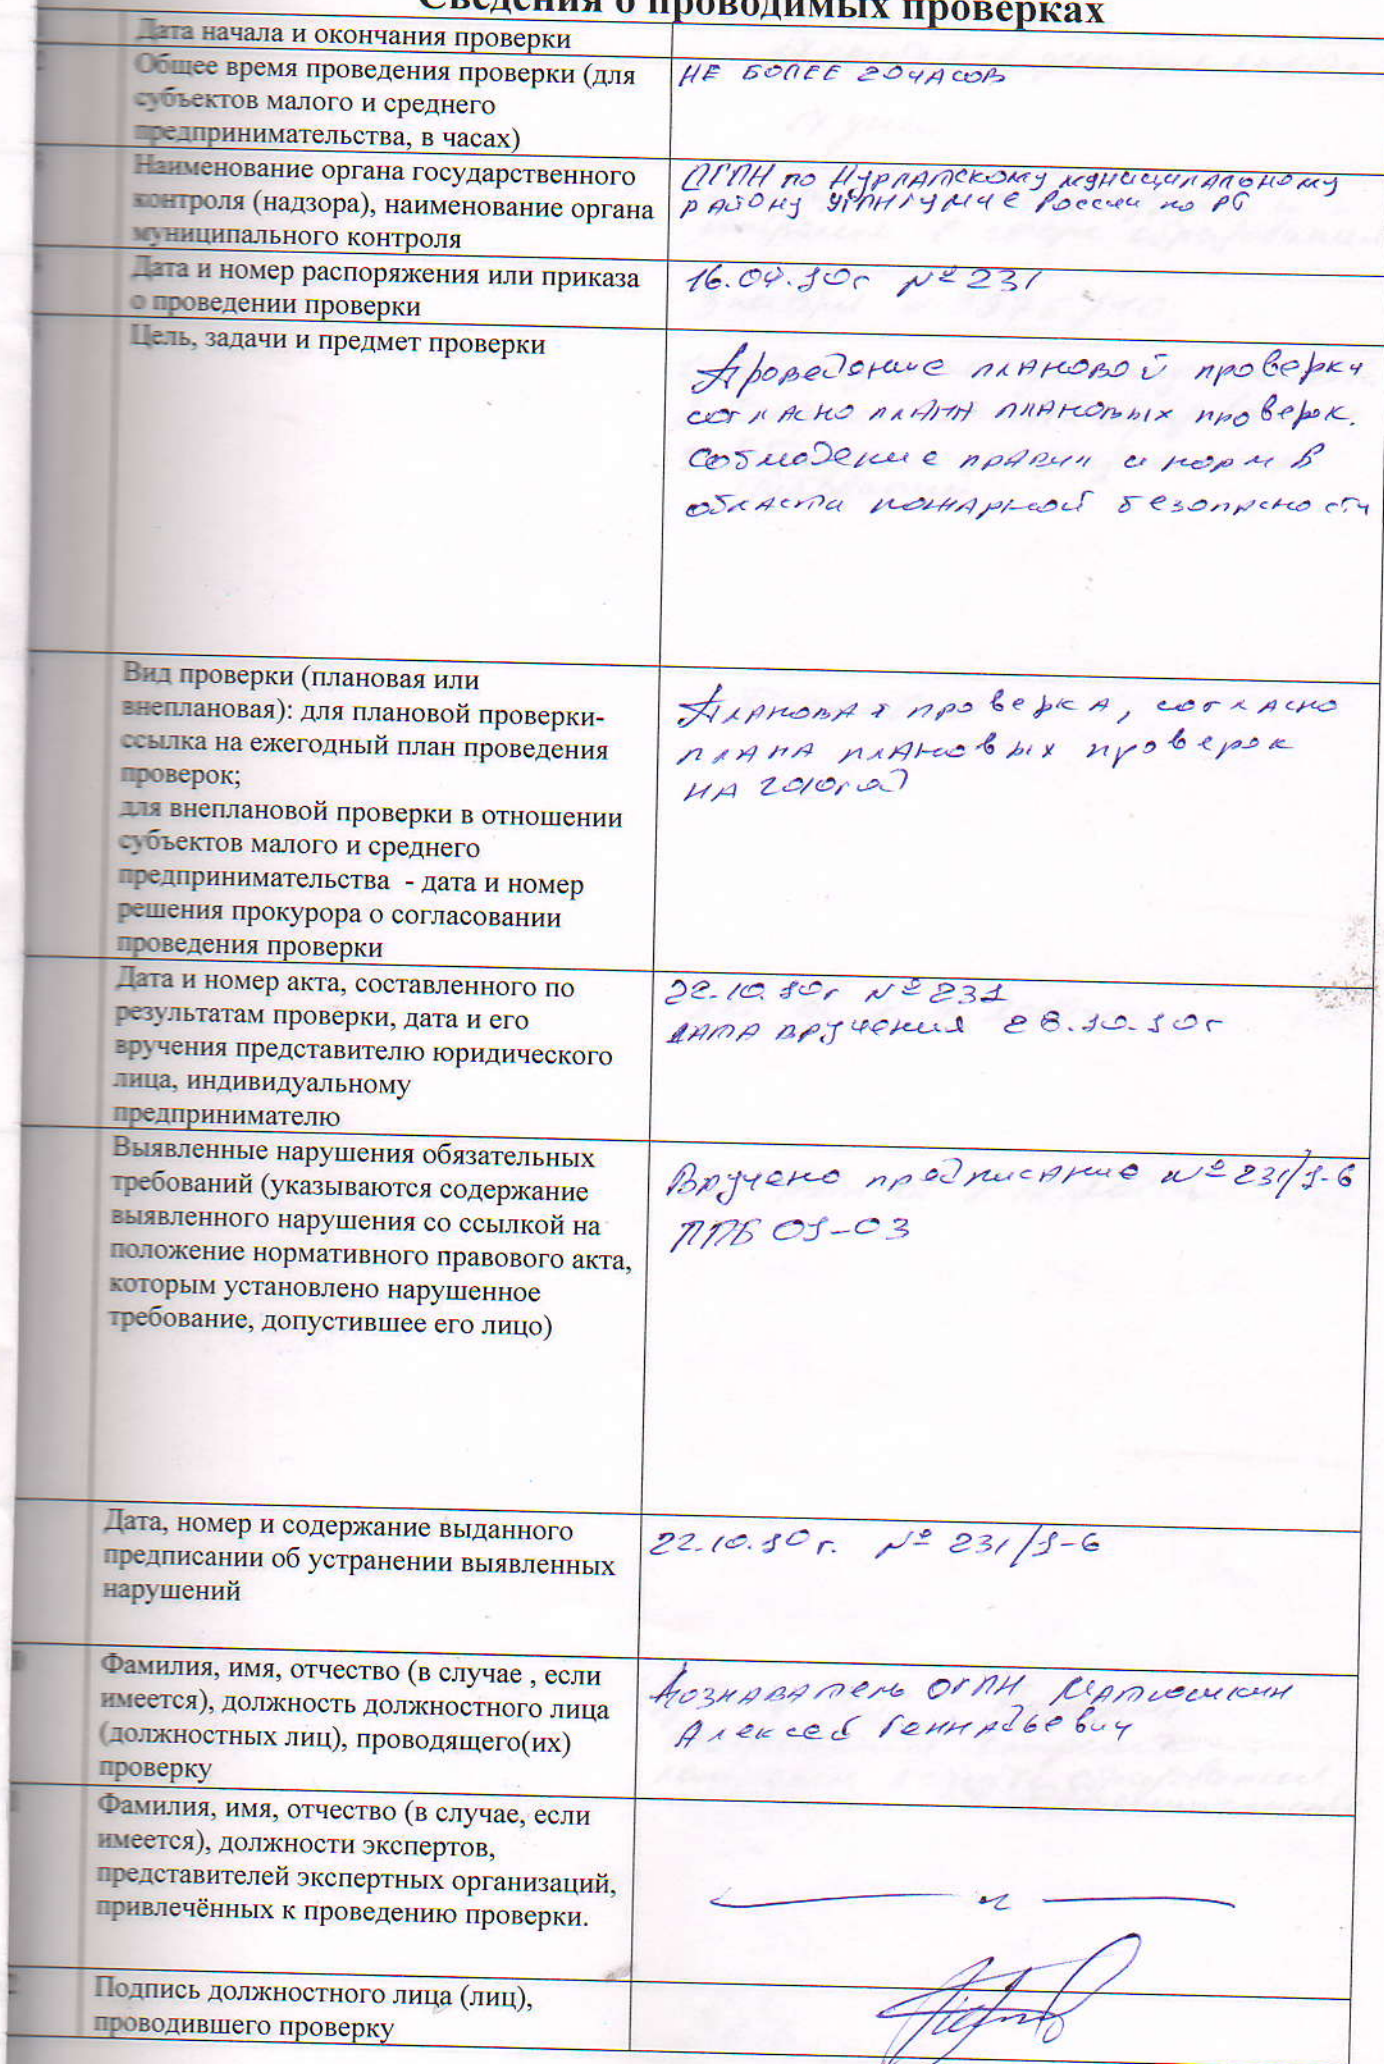 Сведения о проводимых проверках
Дата начала и окончания проверки
Общее время проведения проверки (для
субъектов малого и среднего
предпринимательства, в часах)
НЕ БОЛЕЕ 20 ЧАСОВ
Наименование органа государственного
контроля (надзора), наименование органа
муниципального контроля
ОГПН по Нурлатскому муниципальному
району УГПН ГУ МЧС России по РТ
Дата и номер распоряжения или приказа
о проведении проверки
16.04.10г №231
Цель, задачи и предмет проверки
Проведение плановой проверки
согласно плана плановых проверок.
Соблюдение правил и норм в
области пожарной безопасности
Вид проверки (плановая или
внеплановая): для плановой проверки-
ссылка на ежегодный план проведения
проверок;
для внеплановой проверки в отношении
субъектов малого и среднего
предпринимательства - дата и номер
решения прокурора о согласовании
проведения проверки
Плановая проверка, согласно
плана плановых проверок
на 2010год
Дата и номер акта, составленного по
результатам проверки, дата и его
вручения представителю юридического
лица, индивидуальному
предпринимателю
22.10.10г №231
дата вручения 26.10.10г
Выявленные нарушения обязательных
требований (указываются содержание
выявленного нарушения со ссылкой на
положение нормативного правового акта,
которым установлено нарушенное
требование, допустившее его лицо)
Вручено предписание №231/1-6
ППБ 01-03
Дата, номер и содержание выданного
предписании об устранении выявленных
нарушений
22.10.10г. №231/1-6
Фамилия, имя, отчество (в случае , если
имеется), должность должностного лица
(должностных лиц), проводящего(их)
проверку
Дознаватель ОГПН Матюшкин
Алексей Геннадьевич
Фамилия, имя, отчество (в случае, если
имеется), должности экспертов,
представителей экспертных организаций,
привлечённых к проведению проверки.
Подпись должностного лица (лиц),
проводившего проверку